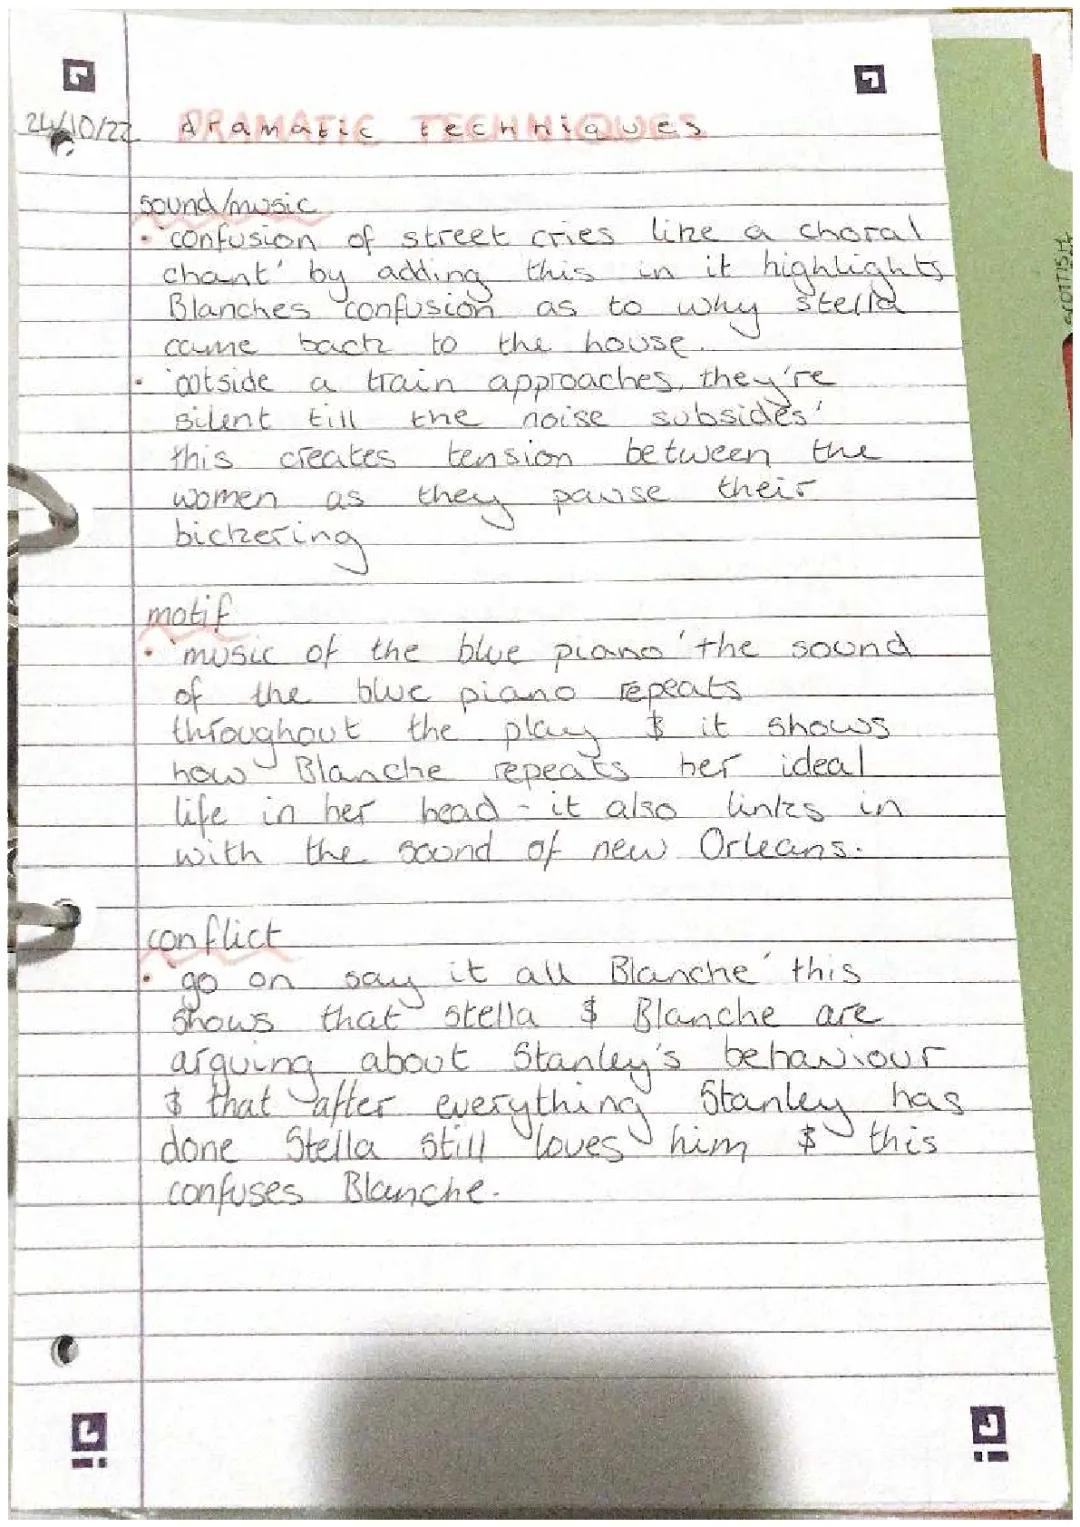 24/10/22 DRAMATIC TECHNIQUES
dramatic techniques
sound/music
• 'confusion of street cries like a choral
chant' by adding this in it highlights
Blanches confusion as to why stella
came back to the house.
• 'outside a train approaches, they're
silent till the noise subsides'
this creates tension between the
women as they pause their
bickering
motif
• 'music of the blue piano' the sound
of the blue piano repeats
throughout the play & it shows
how Blanche repeats her ideal
life in her head - it also links in
with the sound of new Orleans.
conflict
• 'go on say it all Blanche' this
shows that stella & Blanche are
arguing about Stanley's behaviour
& that after everything Stanley has
done Stella still loves him & this
confuses Blanche.